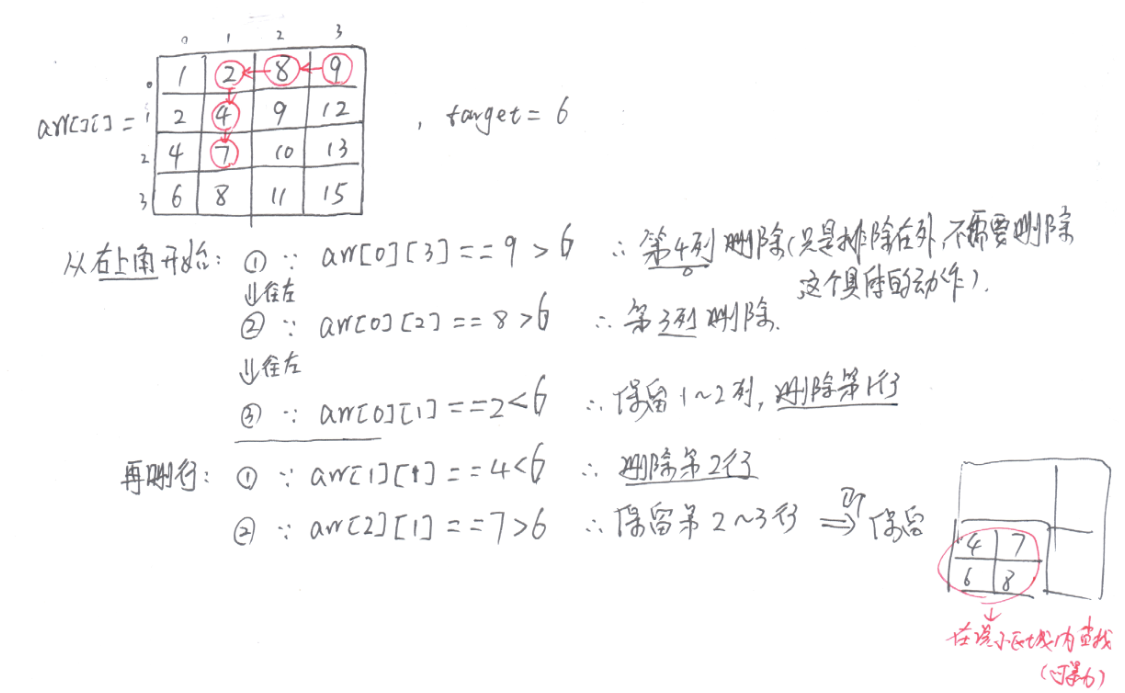 0 1 2 3
0 1 2 8 9
arr[][] = 1 2 4 9 12 , target = 6
2 4 7 10 13
3 6 8 11 15
从右上角开始: ① ∵ arr[0][3] == 9 > 6 ∴ 第4列删除(只是排除在外,不需要删除
这个具体的动作).
⇓往左
② ∵ arr[0][2] == 8 > 6 ∴ 第3列删除.
⇓往左
③ ∵ arr[0][1] == 2 < 6 ∴ 保留1~2列, 删除第1行
再删行: ① ∵ arr[1][1] == 4 < 6 ∴ 删除第2行
② ∵ arr[2][1] == 7 > 6 ∴ 保留第2~3行 ⇒ 保留
4 7
6 8
在该小区域内查找
(可暴力)